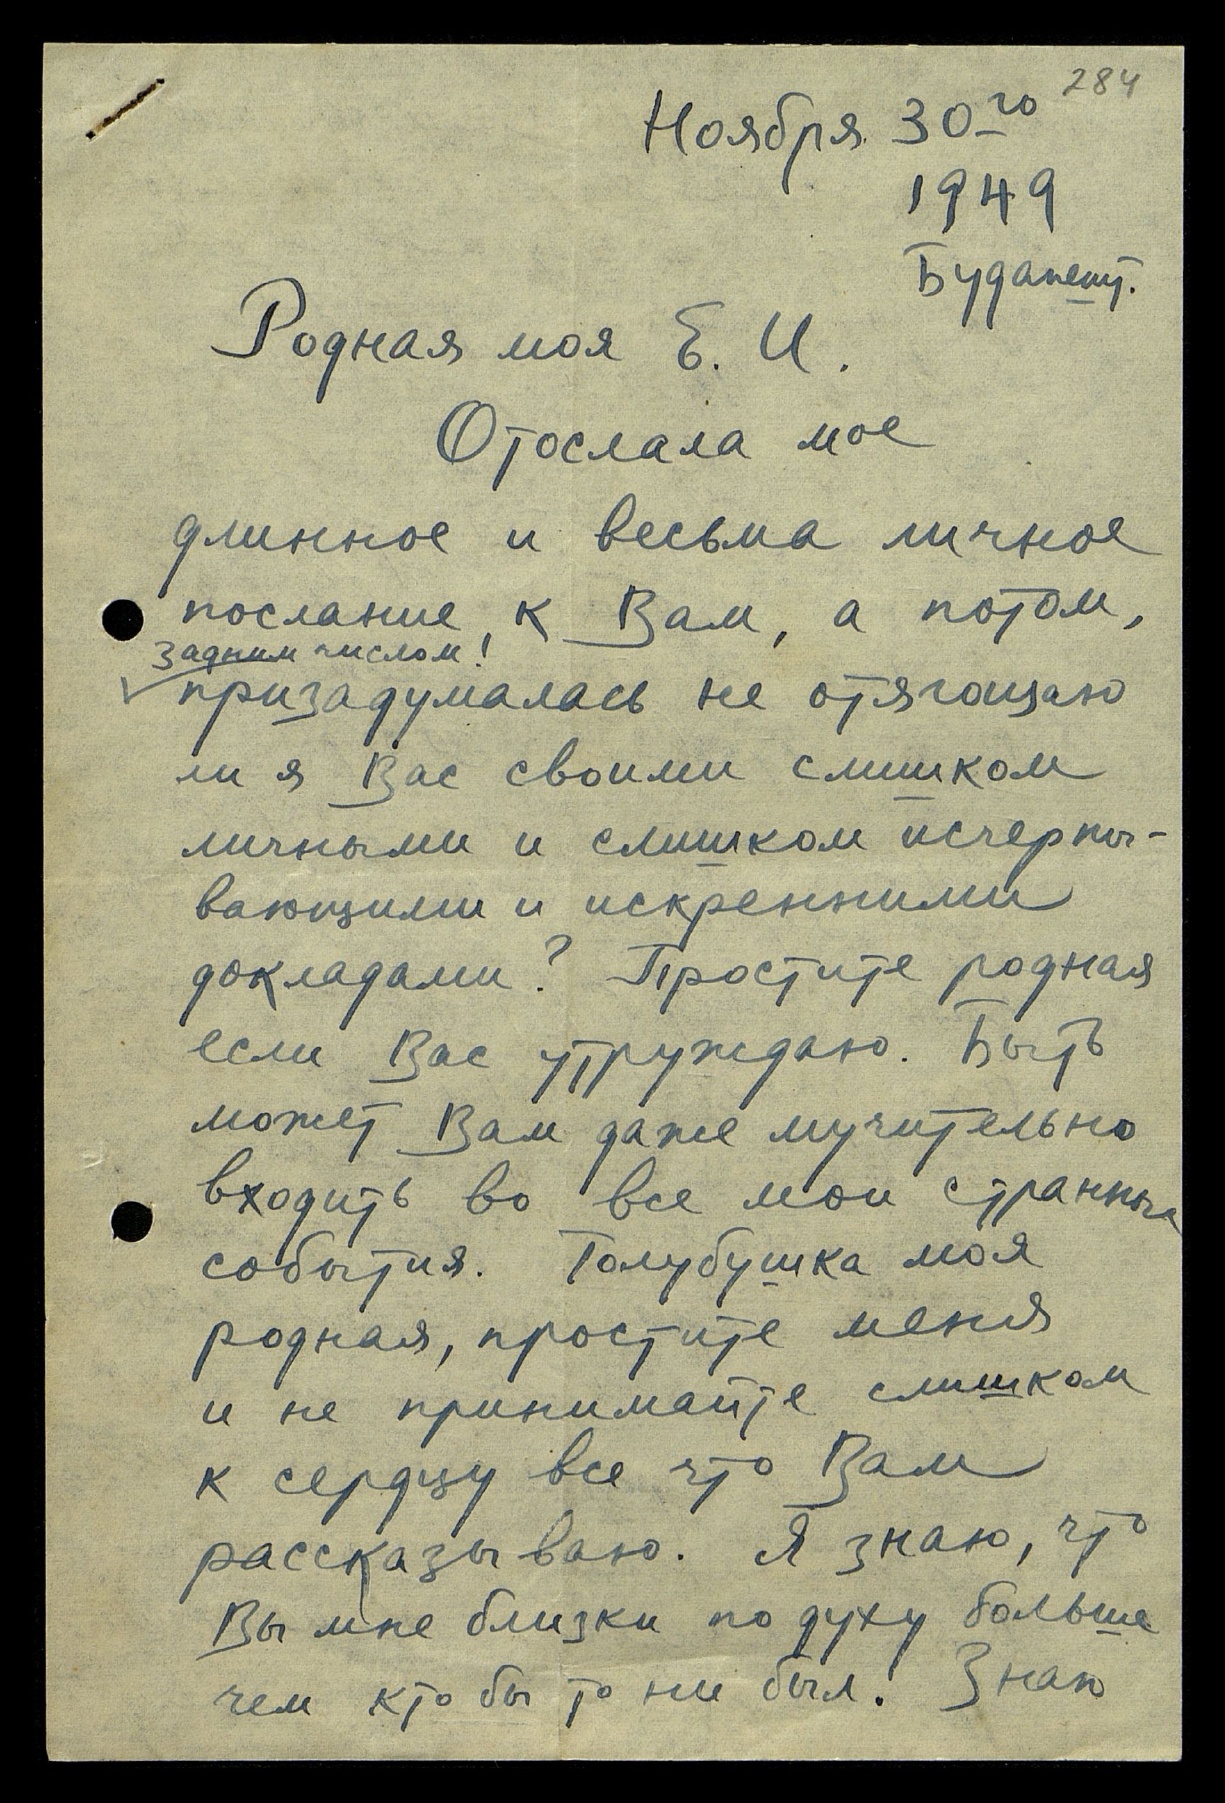 284
Ноября 30го
1949
Будапешт.
Родная моя Е. И.
Отослала мое
длинное и весьма личное
послание, к Вам, а потом,
задним числом!
призадумалась не отягощаю
ли я Вас своими слишком
личными и слишком исчерпы-
вающими и искренними
докладами? Простите родная
если Вас утруждаю. Быть
может Вам даже мучительно
входить во все мои странные
события. Голубушка моя
родная, простите меня
и не принимайте слишком
к сердцу все что Вам
рассказываю. Я знаю, что
Вы мне близки по духу больше
чем кто бы то ни был. Знаю